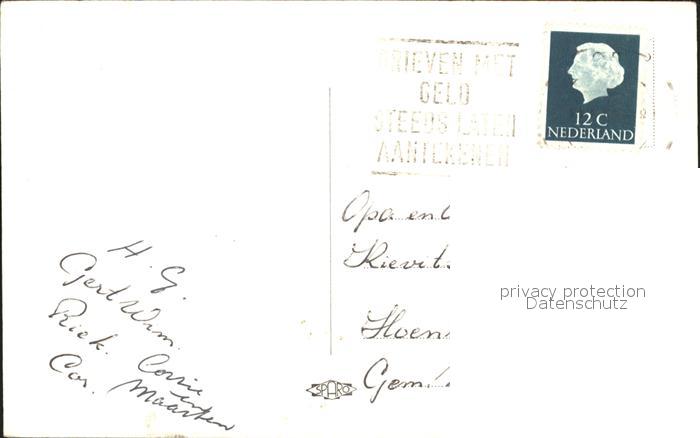 BRIEVEN MET
GELD
STEEDS LATEN
AANTEKENEN
12 C
NEDERLAND
Opa en
Kievit
privacy protection
Datenschutz
Hoen
Gem.
H. G.
Gert Wim.
Riek. Corrie
Cor. en Maarten
SPARO